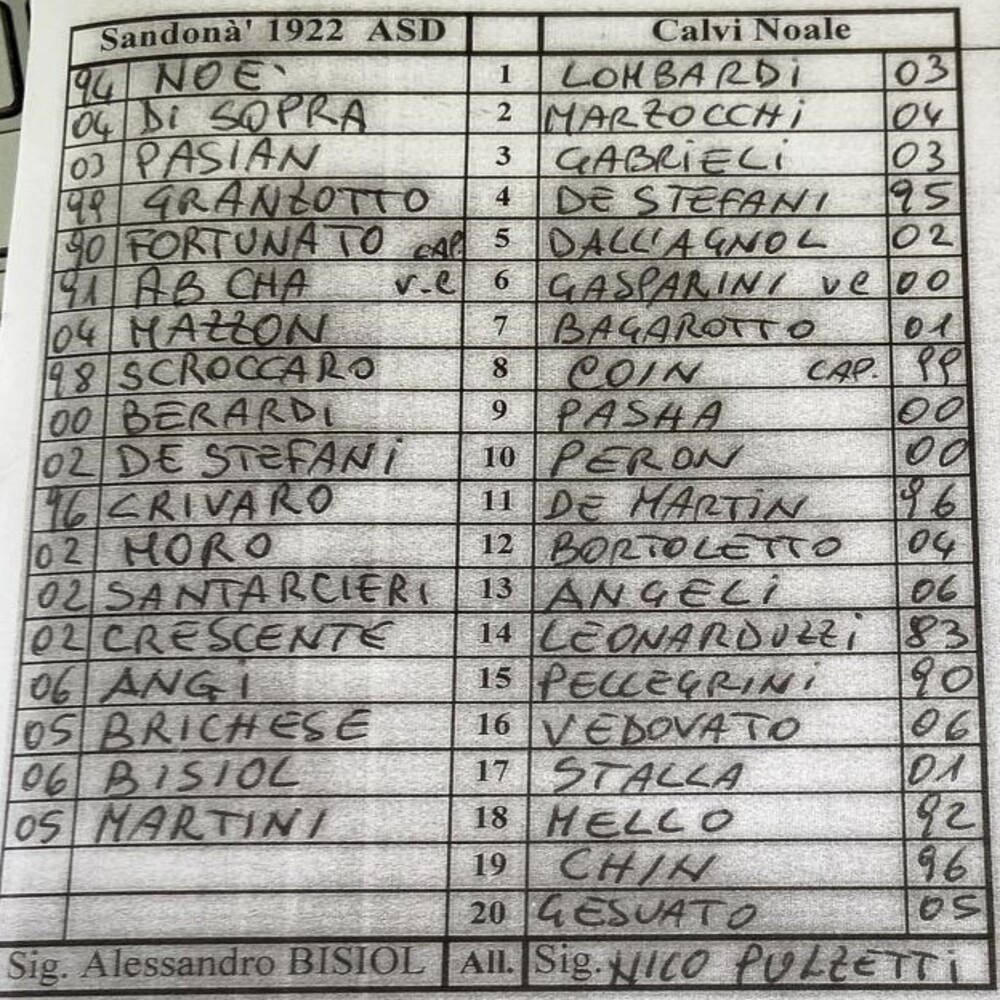 Sandonà' 1922 ASD Calvi Noale
94 NOE' 1 LOMBARDi 03
04 Di SOPRA 2 MARZOCCHi 04
03 PASIAN 3 GABRiELi 03
99 GRANZOTTO 4 DE STEFANI 95
90 FORTUNATO CAP. 5 DALL'AGNOL 02
91 ABCHA v.e 6 GASPARINI ve 00
04 MAZZON 7 BAGAROTTO 01
98 SCROCCARO 8 COIN CAP. 99
00 BERARDI 9 PASHA 00
02 DE STEFANi 10 PERON 00
96 CRIVARO 11 DE MARTiN 96
02 MORO 12 BORTOLETTO 04
02 SANTARCIERI 13 ANGELi 06
02 CRESCENTE 14 LEONARDUZZi 83
06 ANGi 15 PELLEGRINi 90
05 BRICHESE 16 VEDOVATO 06
06 BISIOL 17 STALLA 01
05 MARTINI 18 MELLO 92
19 CHIN 96
20 GESUATO 05
Sig. Alessandro BISIOL All. Sig. NICO PULZETTi